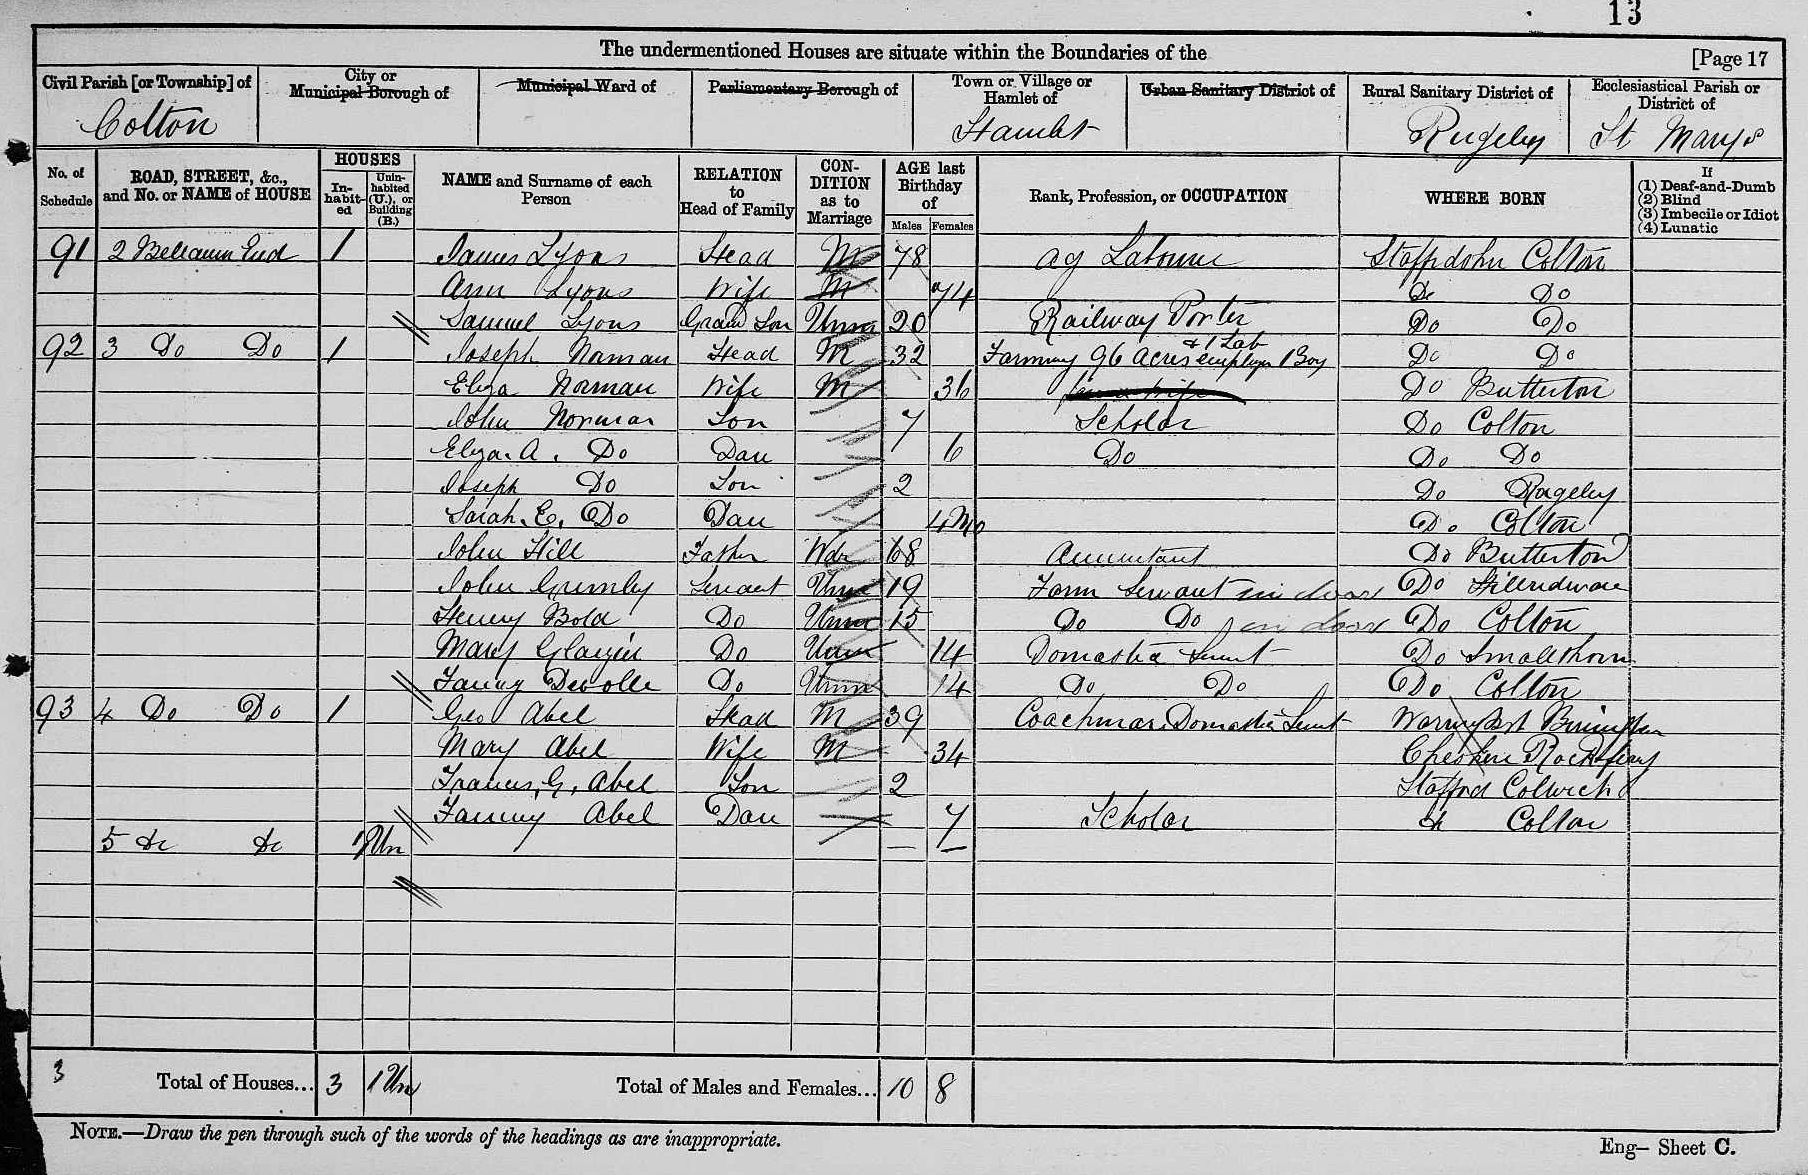 13
The undermentioned Houses are situate within the Boundaries of the [Page 17
Civil Parish [or Township] of Colton
City or Municipal Borough of
Municipal Ward of
Parliamentary Borough of
Town or Village or Hamlet of Hamlet
Urban Sanitary District of
Rural Sanitary District of Rugeley
Ecclesiastical Parish or District of St Marys
No. of Schedule
ROAD, STREET, &c., and No. or NAME of HOUSE
HOUSES
Inhabited
Uninhabited (U.), or Building (B.)
NAME and Surname of each Person
RELATION to Head of Family
CONDITION as to Marriage
AGE last Birthday of
Males Females
Rank, Profession, or OCCUPATION
WHERE BORN
If (1) Deaf-and-Dumb (2) Blind (3) Imbecile or Idiot (4) Lunatic
91 2 Bellamin End 1 James Lyons Head M 78 Ag Labourer Colton
Ann Lyons Wife M 74 Do Do
Samuel Lyons Grand Son Unm 20 Railway Porter Do Do
92 3 Do Do 1 Joseph Norman Head M 32 Farming 96 Acres employs 1 Boy & 1 Lab Do Do
Eliza Norman Wife M 36 Do Butterton
John Norman Son 7 Scholar Do Colton
Eliza. A. Do Dau 6 Do Do Do
Joseph Do Son 2 Do Rugeley
Sarah. E. Do Dau 4 Mo Do Colton
John Hill Father Wdr 68 Accountant Do Butterton
John Grimley Servant Unm 19 Farm Servant in door Do
Henry Bold Do Unm 15 Do Do in door Do Colton
Mary Do Unm 14 Domestic Servt Do Smallthorn
Fanny Do Unm 14 Do Do Do Colton
93 4 Do Do 1 Geo Abel Head M 39 Coachman Domestic Servt
Mary Abel Wife M 34 Cheshire Rockferry
Francis. G. Abel Son 2 Stafford Colwich
Fanny Abel Dau 7 Scholar do Colton
5 do do 1 Un
3 Total of Houses... 3 1 Un Total of Males and Females... 10 8
NOTE.—Draw the pen through such of the words of the headings as are inappropriate.
Eng— Sheet C.